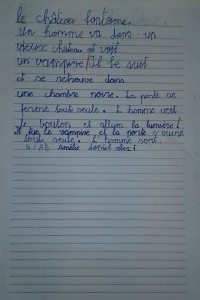 le château fantôme.
Un homme va dans un
vieux château et voit
un vampire. Il le suit
et se retrouve dans
une chambre noire. La porte se
ferme toute seule. L'homme voit
le bouton et allum la lumière!
Il tue le vampire et la porte s'ouvre
toute seule. L'homme sort.
Amélie